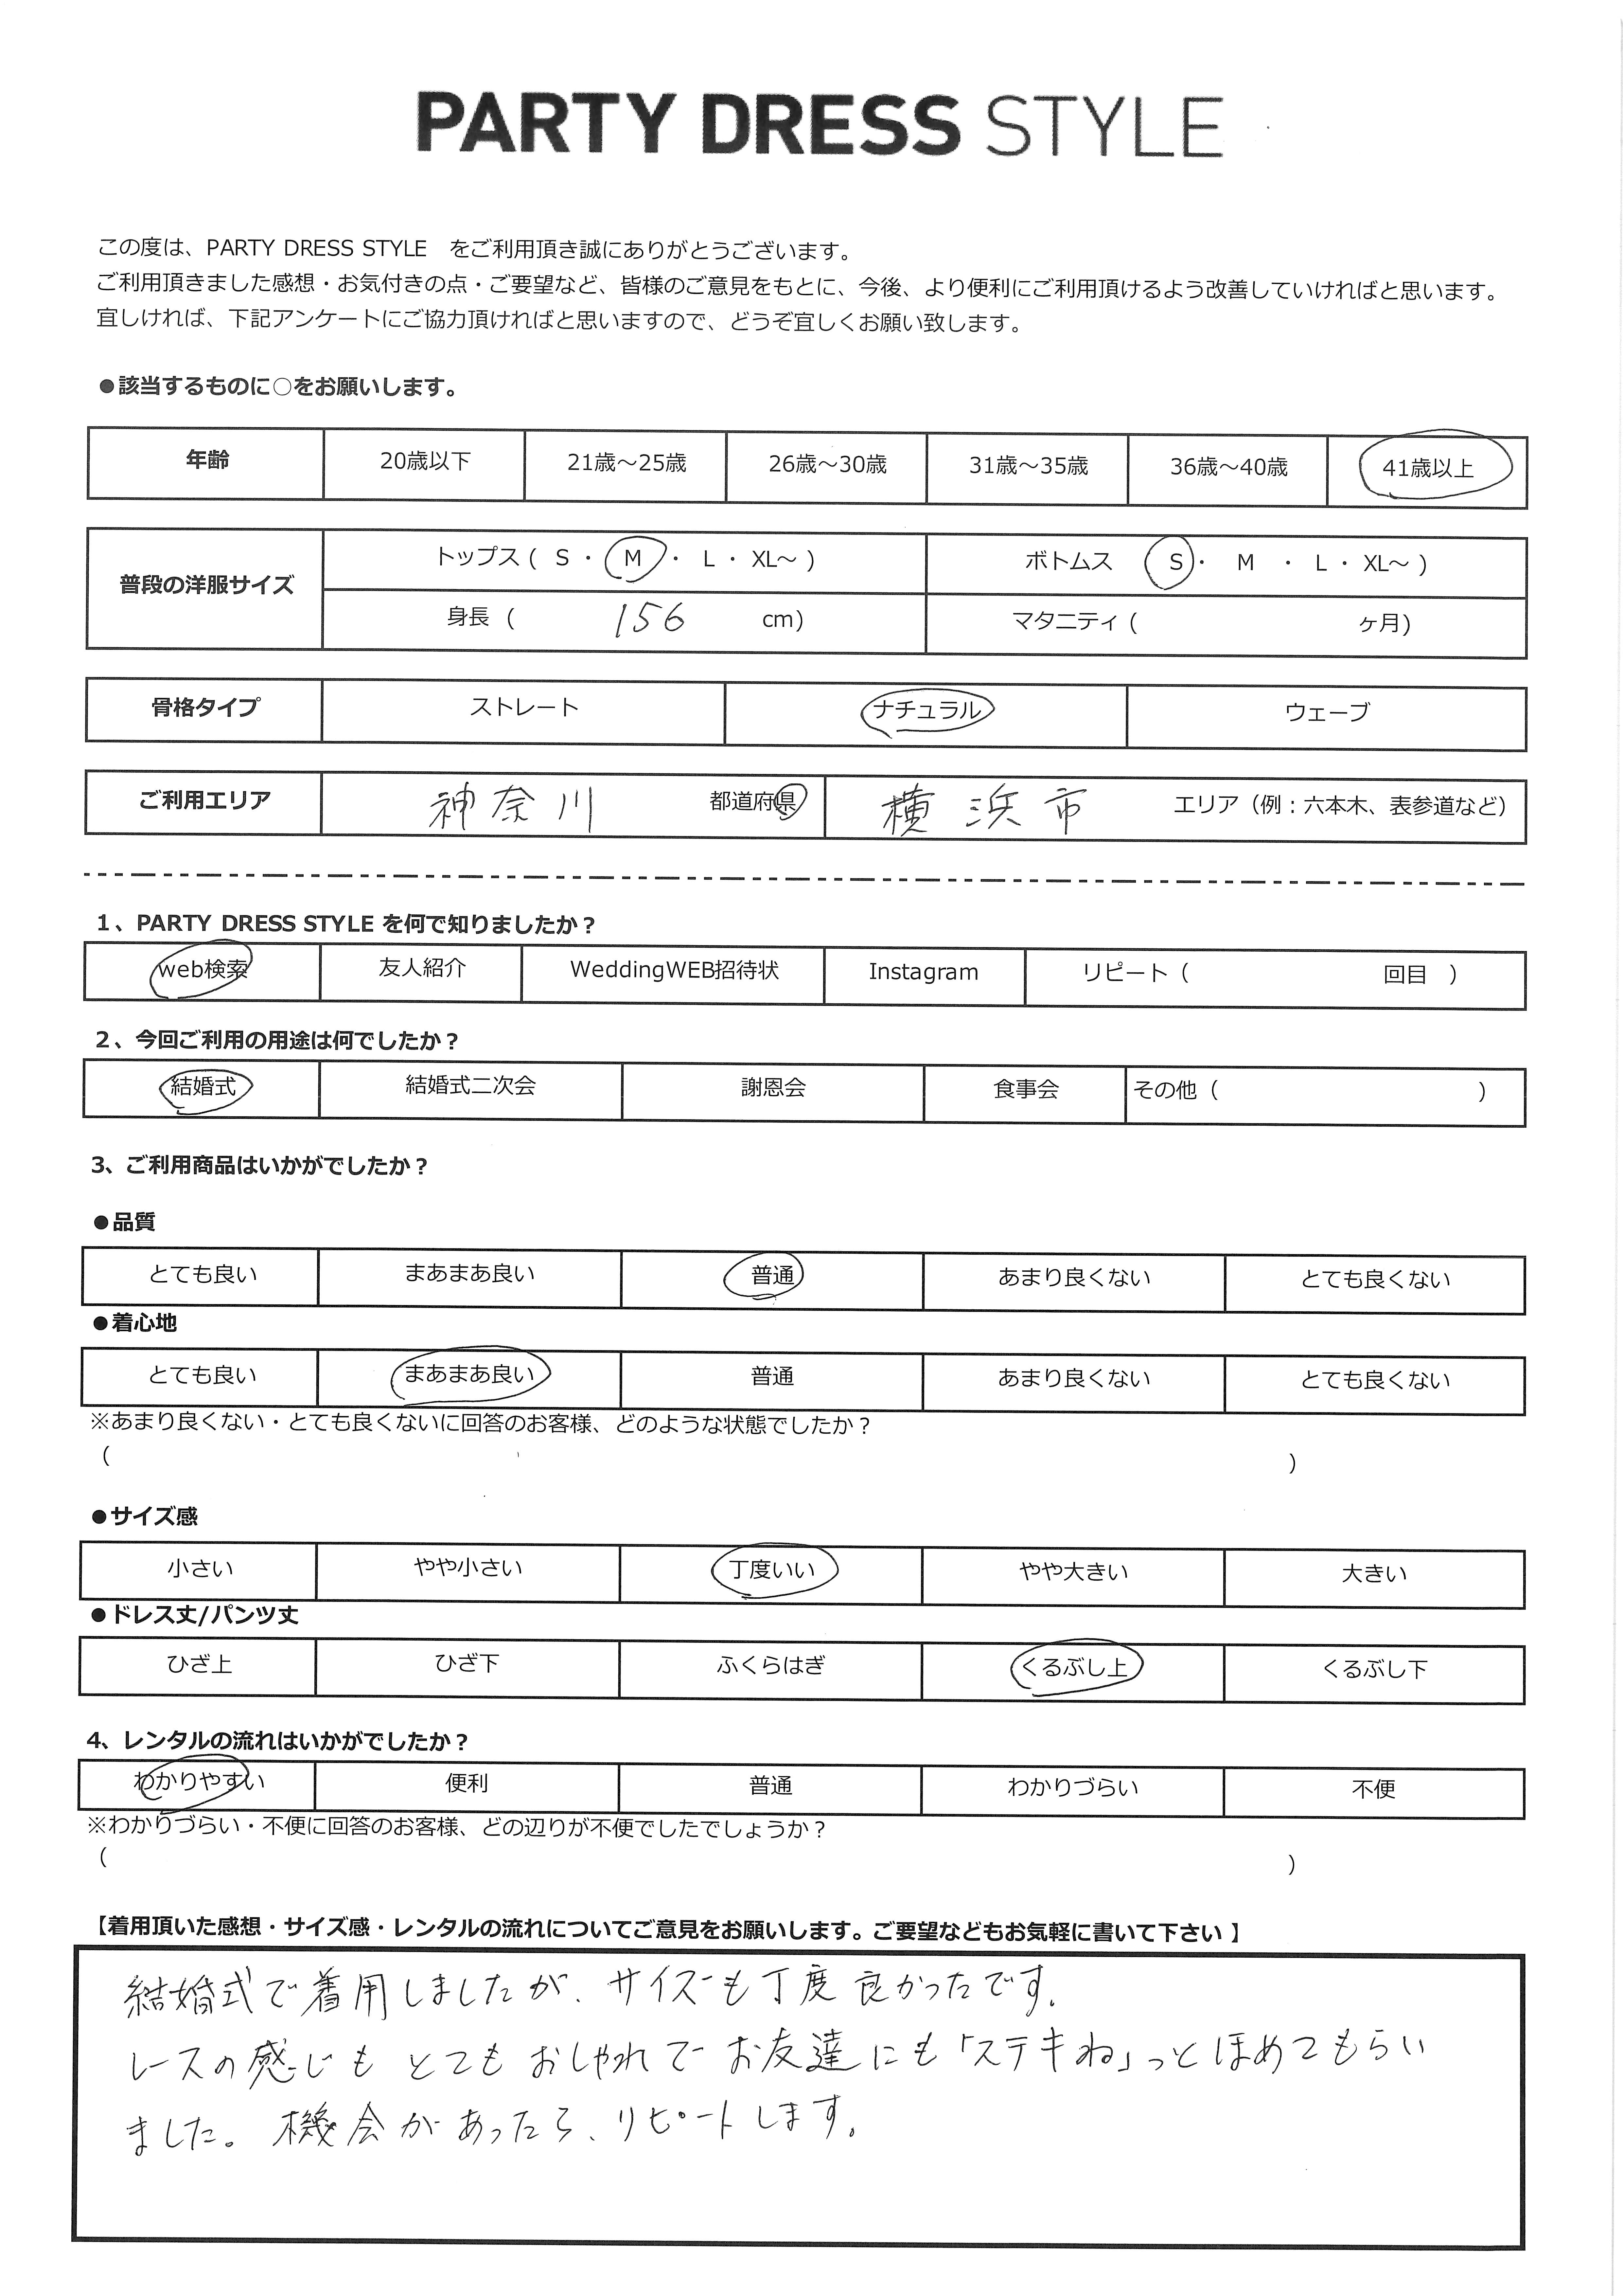 PARTY DRESS STYLE
この度は、PARTY DRESS STYLE　をご利用頂き誠にありがとうございます。
ご利用頂きました感想・お気付きの点・ご要望など、皆様のご意見をもとに、今後、より便利にご利用頂けるよう改善していければと思います。
宜しければ、下記アンケートにご協力頂ければと思いますので、どうぞ宜しくお願い致します。
●該当するものに○をお願いします。
年齢 20歳以下 21歳～25歳 26歳～30歳 31歳～35歳 36歳～40歳 41歳以上
普段の洋服サイズ トップス ( S ・ M ・ L ・ XL～ ) ボトムス S ・ M ・ L ・ XL～ )
身長 ( 156 cm) マタニティ ( ヶ月)
骨格タイプ ストレート ナチュラル ウェーブ
ご利用エリア 神奈川 都道府県 横浜市 エリア（例：六本木、表参道など）
1、PARTY DRESS STYLE を何で知りましたか？
web検索 友人紹介 WeddingWEB招待状 Instagram リピート（ 回目 ）
2、今回ご利用の用途は何でしたか？
結婚式 結婚式二次会 謝恩会 食事会 その他（ ）
3、ご利用商品はいかがでしたか？
●品質
とても良い まあまあ良い 普通 あまり良くない とても良くない
●着心地
とても良い まあまあ良い 普通 あまり良くない とても良くない
※あまり良くない・とても良くないに回答のお客様、どのような状態でしたか？
（ ）
●サイズ感
小さい やや小さい 丁度いい やや大きい 大きい
●ドレス丈/パンツ丈
ひざ上 ひざ下 ふくらはぎ くるぶし上 くるぶし下
4、レンタルの流れはいかがでしたか？
わかりやすい 便利 普通 わかりづらい 不便
※わかりづらい・不便に回答のお客様、どの辺りが不便でしたでしょうか？
（ ）
【着用頂いた感想・サイズ感・レンタルの流れについてご意見をお願いします。ご要望などもお気軽に書いて下さい 】
結婚式で着用しましたが、サイズも丁度良かったです。
レースの感じもとてもおしゃれでお友達にも「ステキね」っとほめてもらい
ました。機会があったら、リピートします。